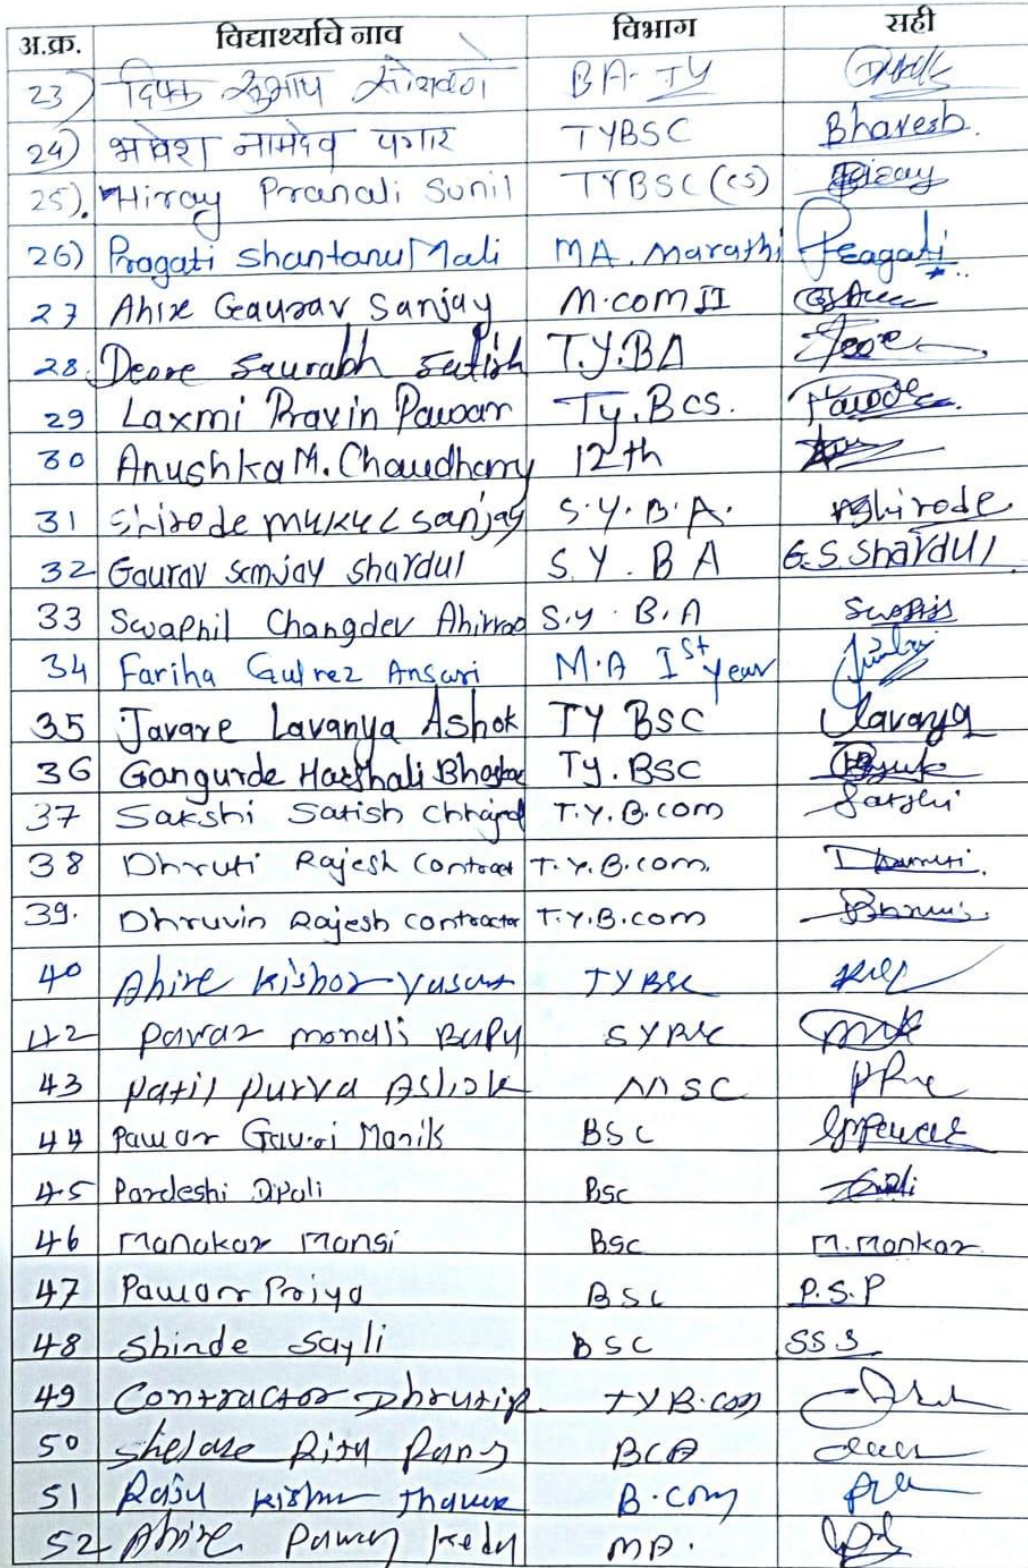 अ.क्र. विद्यार्थ्याचे नाव विभाग सही
23) दिपक सुभाष BA-TY
24) भावेश नामदेव पगार TYBSC Bhavesh.
25). Hiray Pranali Sunil TYBSC (CS) Hiray
26) Pragati Shantanu Mali MA. Marathi Pragati
27 Ahire Gaurav Sanjay M.com II
28. Deore Saurabh Satish T.Y.BA Deore
29 Laxmi Pravin Pawar Ty. Bcs.
30 Anushka M. Chaudhary 12th
31 Shirode mukul sanjay S.Y.B.A. Shirode
32 Gaurav sanjay shardul S.Y. BA G.S. Shardul
33 Swapnil Changdev Ahirrao S.y. B.A
34 Fariha Gulrez Ansari M.A Ist year
35 Javare Lavanya Ashok TY BSC Lavanya
36 Gangurde Harshali Bhaskar Ty. BSC
37 Sakshi Satish Chhajed T.Y.B.com Sakshi
38 Dhruti Rajesh Contractor T.Y.B.com. Dhruti
39. Dhruvin Rajesh Contractor T.Y.B.com
40 Ahire Kishor TYBSc
42 Pawar monali Bapu SYBSc
43 Patil Purva Ashok MSC
44 Pawar Gauri Manik BSC
45 Pardeshi Dipali BSC
46 Manakar Mansi BSC M.Mankar
47 Pawar Priya BSC P.S.P
48 Shinde Sayli BSC SSS
49 Contractor Dhruti R TYB.com
50 BCA
51 Raju B.com
52 Ahire MA.